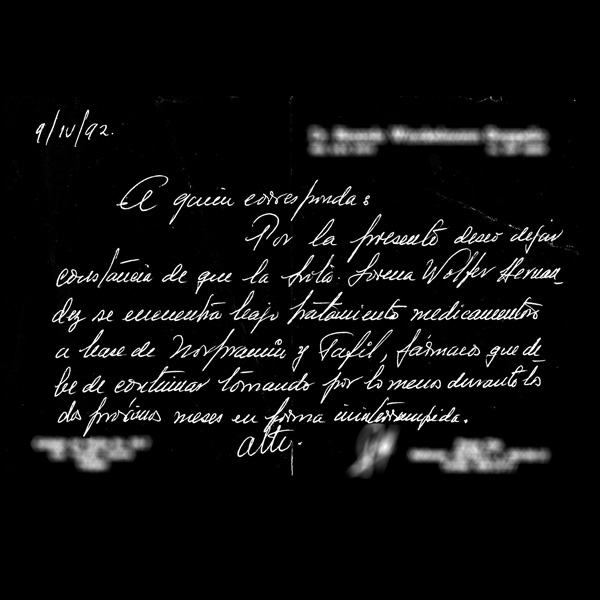 9/IV/92.
A quien corresponda:
Por la presente deseo dejar
constancia de que la Srita. Lorena Wolfer Hernan_
dez se encuentra bajo tratamiento medicamentoso
a base de Norpramin y Tafil, fármacos que de_
be de continuar tomando por lo menos durante los
dos próximos meses en forma ininterrumpida.
atte.